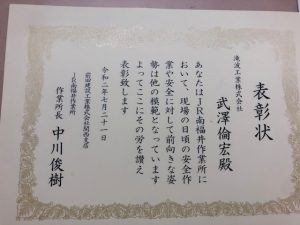 表彰状
滝波工業株式会社
武澤倫宏殿
あなたはJR南福井作業所に
おいて、現場の日頃の安全作
業や安全に対して前向きな姿
勢は他の模範となっています
よってここにその労を讃え
表彰致します
令和二年七月二十一日
前田建設工業株式会社関西支店
JR南福井作業所
作業所長 中川俊樹